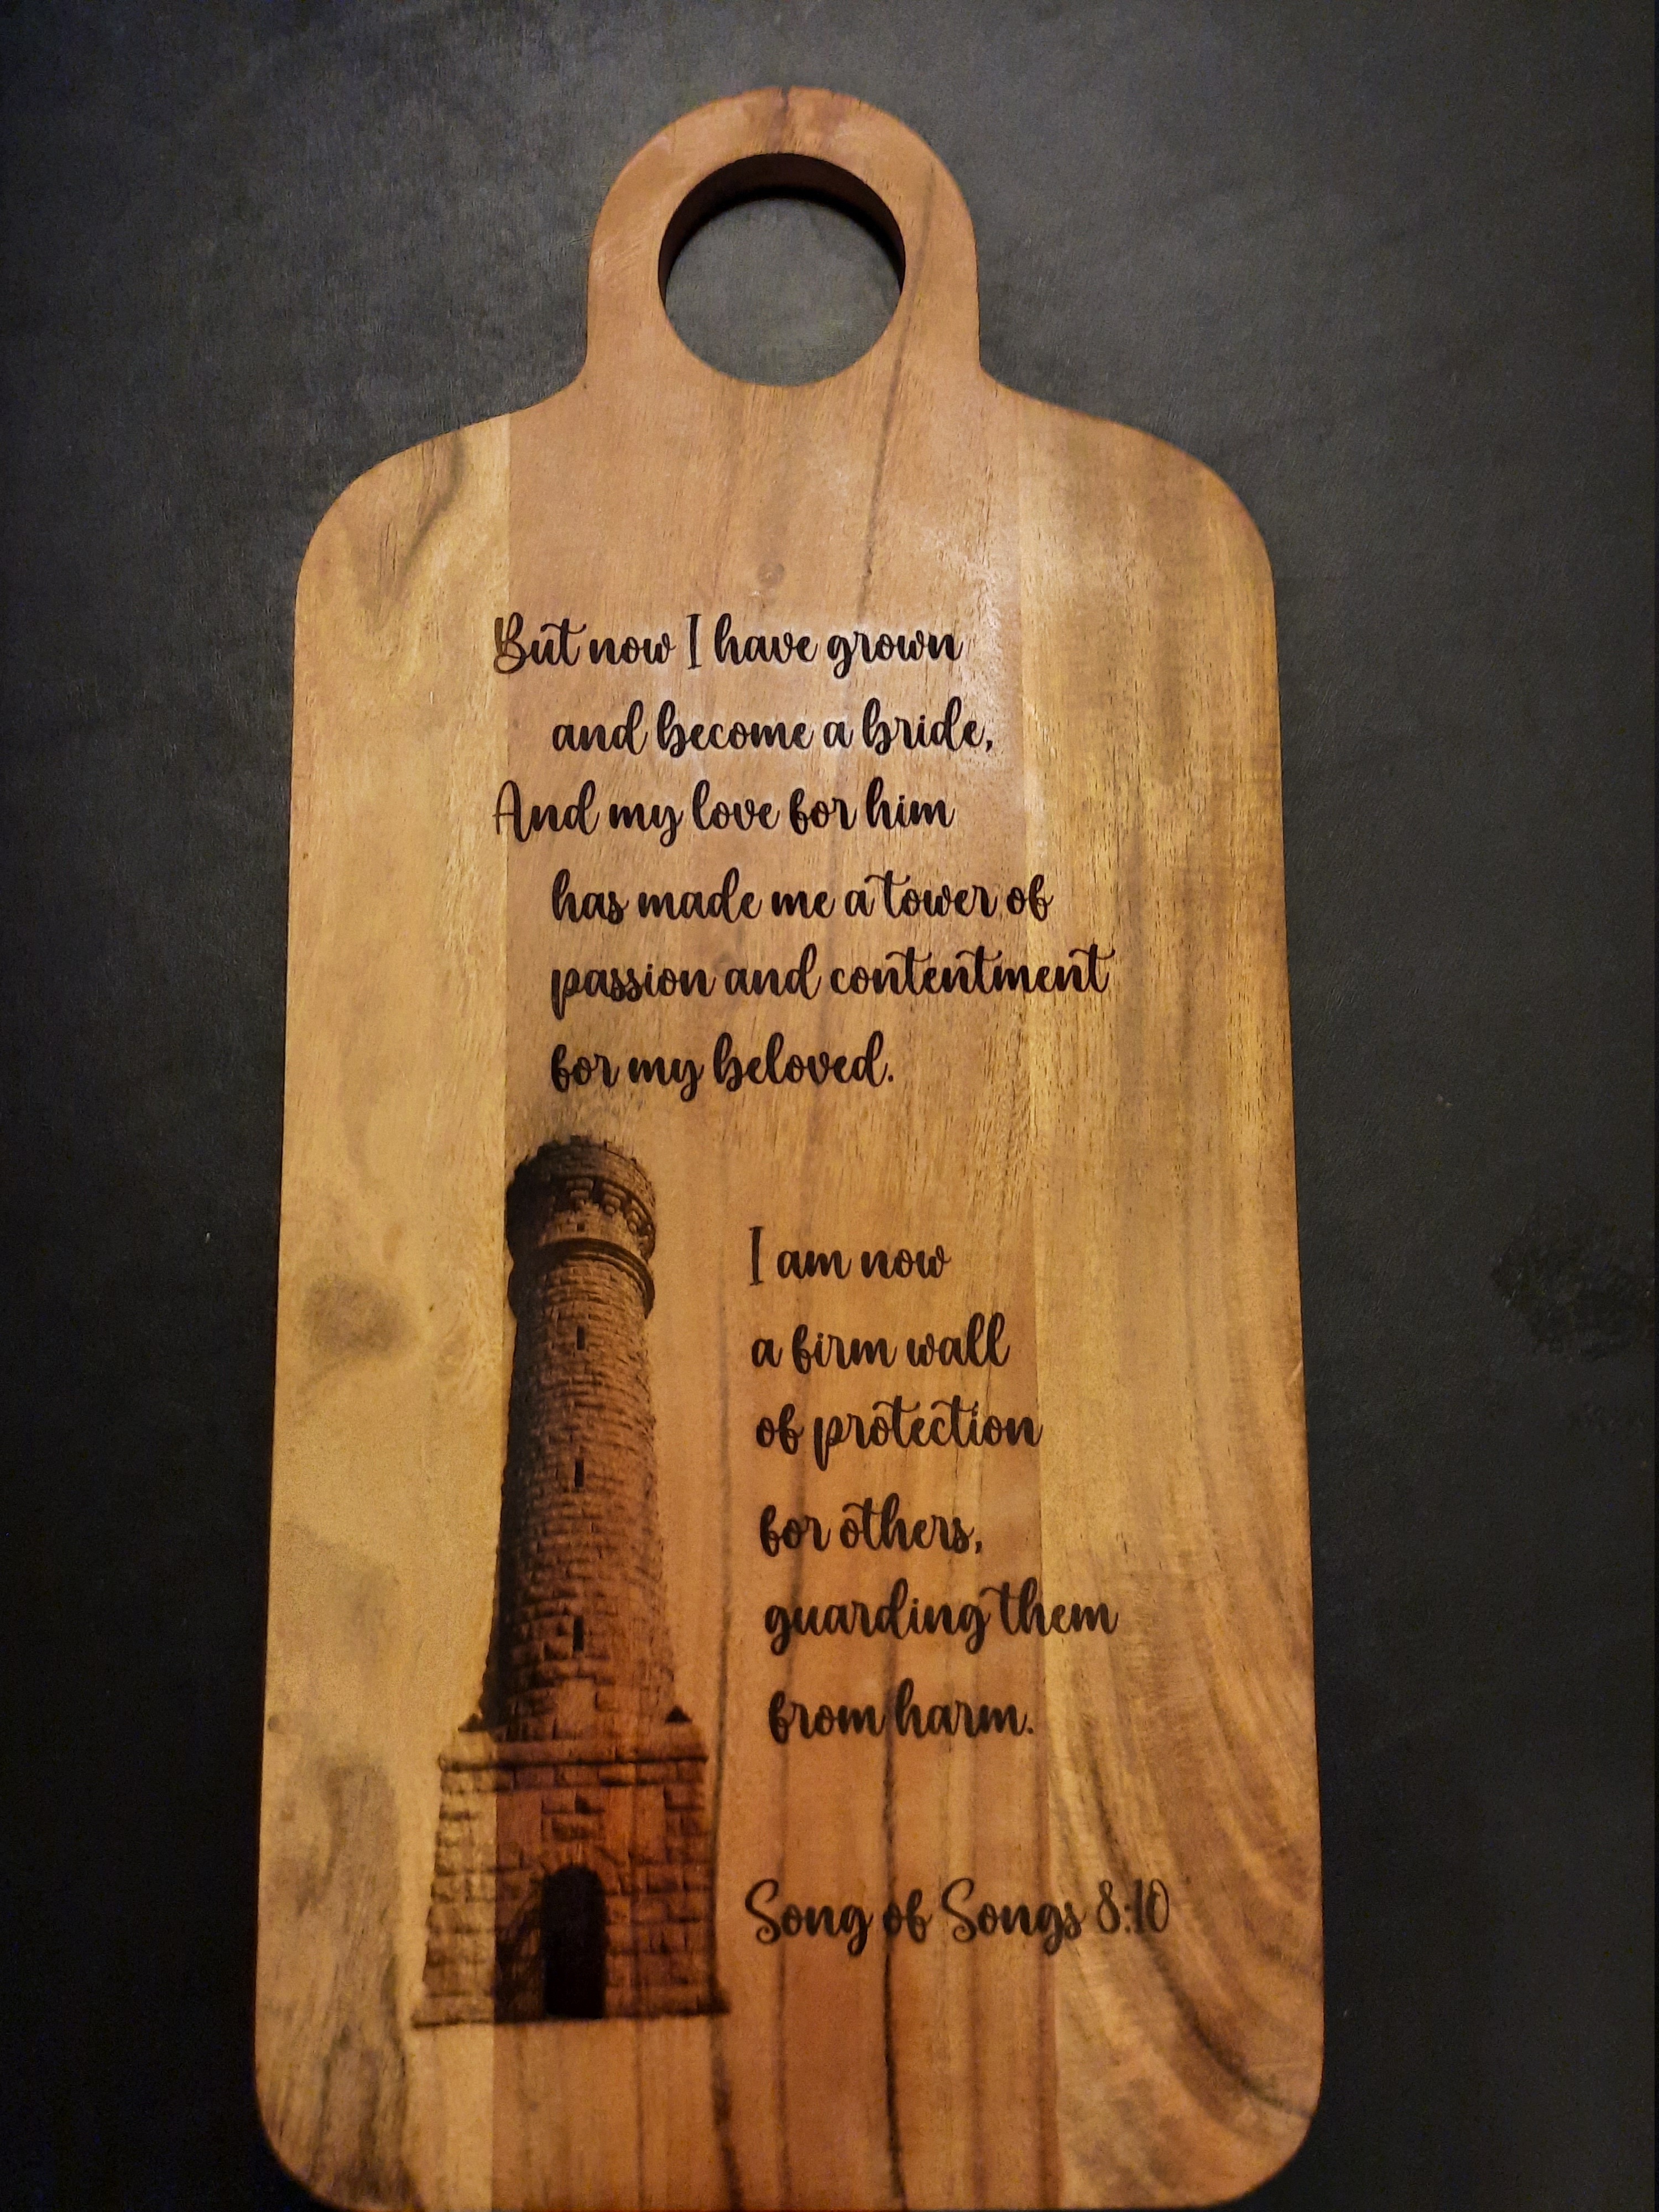 But now I have grown
and become a bride,
And my love for him
has made me a tower of
passion and contentment
for my beloved.
I am now
a firm wall
of protection
for others,
guarding them
from harm.
Song of Songs 8:10